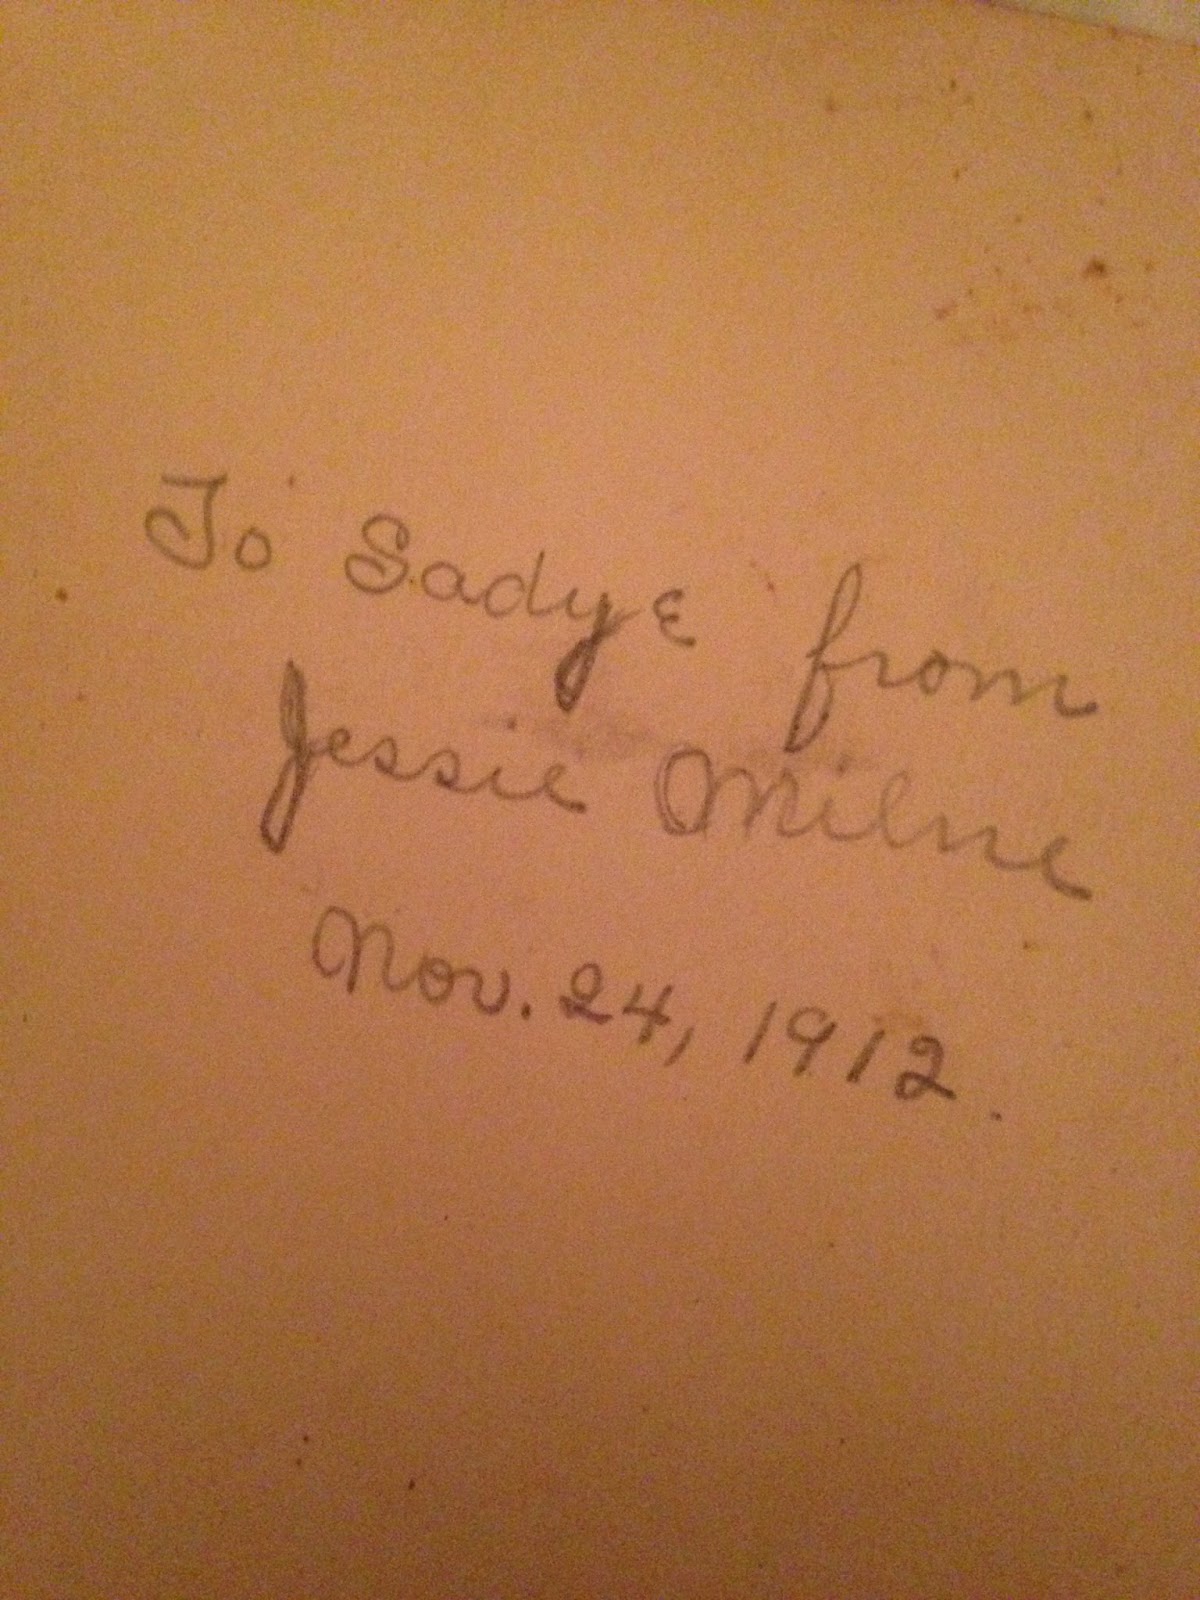 To Sadye from
Jessie Milne
Nov. 24, 1912.